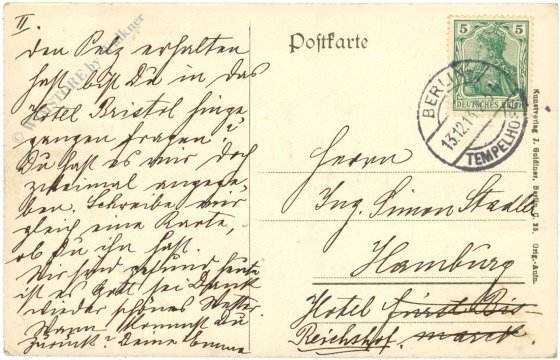 II.
den Pelz erhalten
hast bist Du in das
Hotel Bristol hinge-
gangen fragen u.
Du hast es mir doch
zweimal angege-
ben. Schreibe mir
gleich eine Karte,
ob Du ihn hast.
Wir sind gesund, heute
ist es Gott sei Dank
wieder schönes Wetter
Wann kommst Du
zurück? Deine
Postkarte
5
DEUTSCHES REICH
BERLIN
13.12.13
TEMPELHOF
Herrn
Ing. Simon Stadler
Hamburg
Hotel Fürst Bis-
Reichshof. marck
Kunstverlag J. Goldiner, Berlin C. 25. Orig.-Aufn.